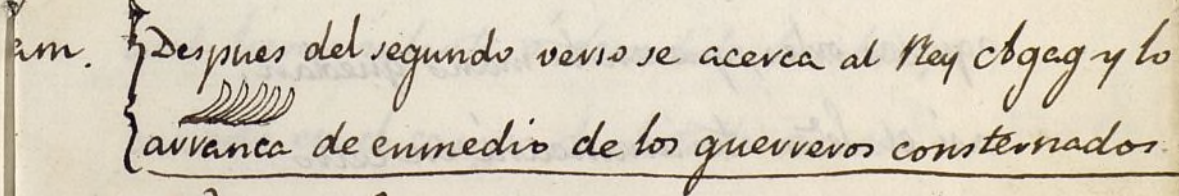 am. Despues del segundo verso se acerca al Rey Agag y lo
arranca de enmedio de los guerreros consternados.